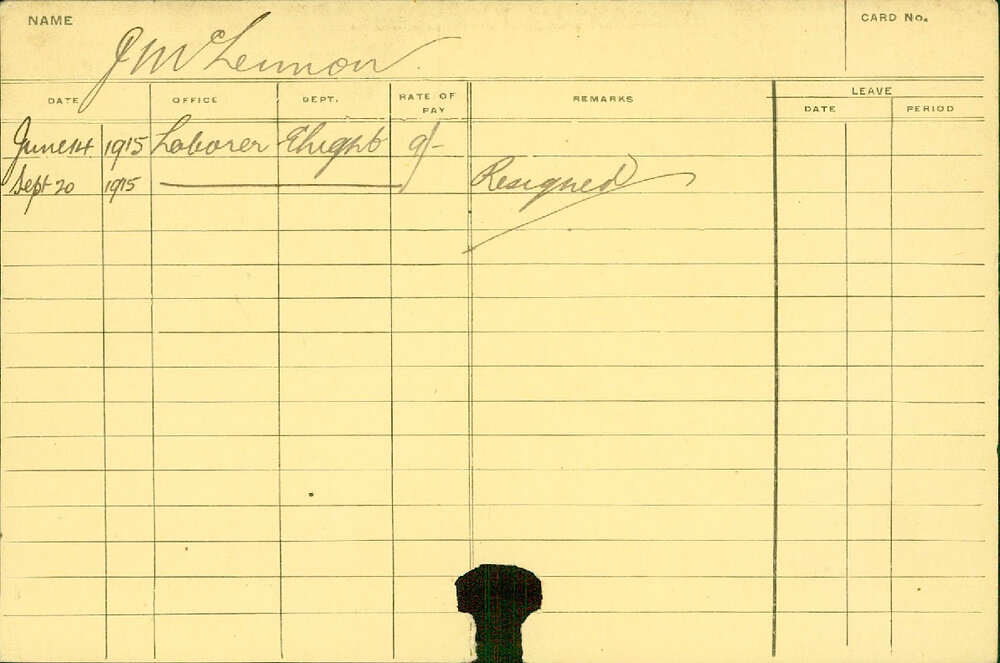 NAME J McLennon CARD No.
DATE OFFICE DEPT. RATE OF PAY REMARKS LEAVE
DATE PERIOD
June 14 1915 Laborer Elight 9/-
Sept 20 1915 Resigned